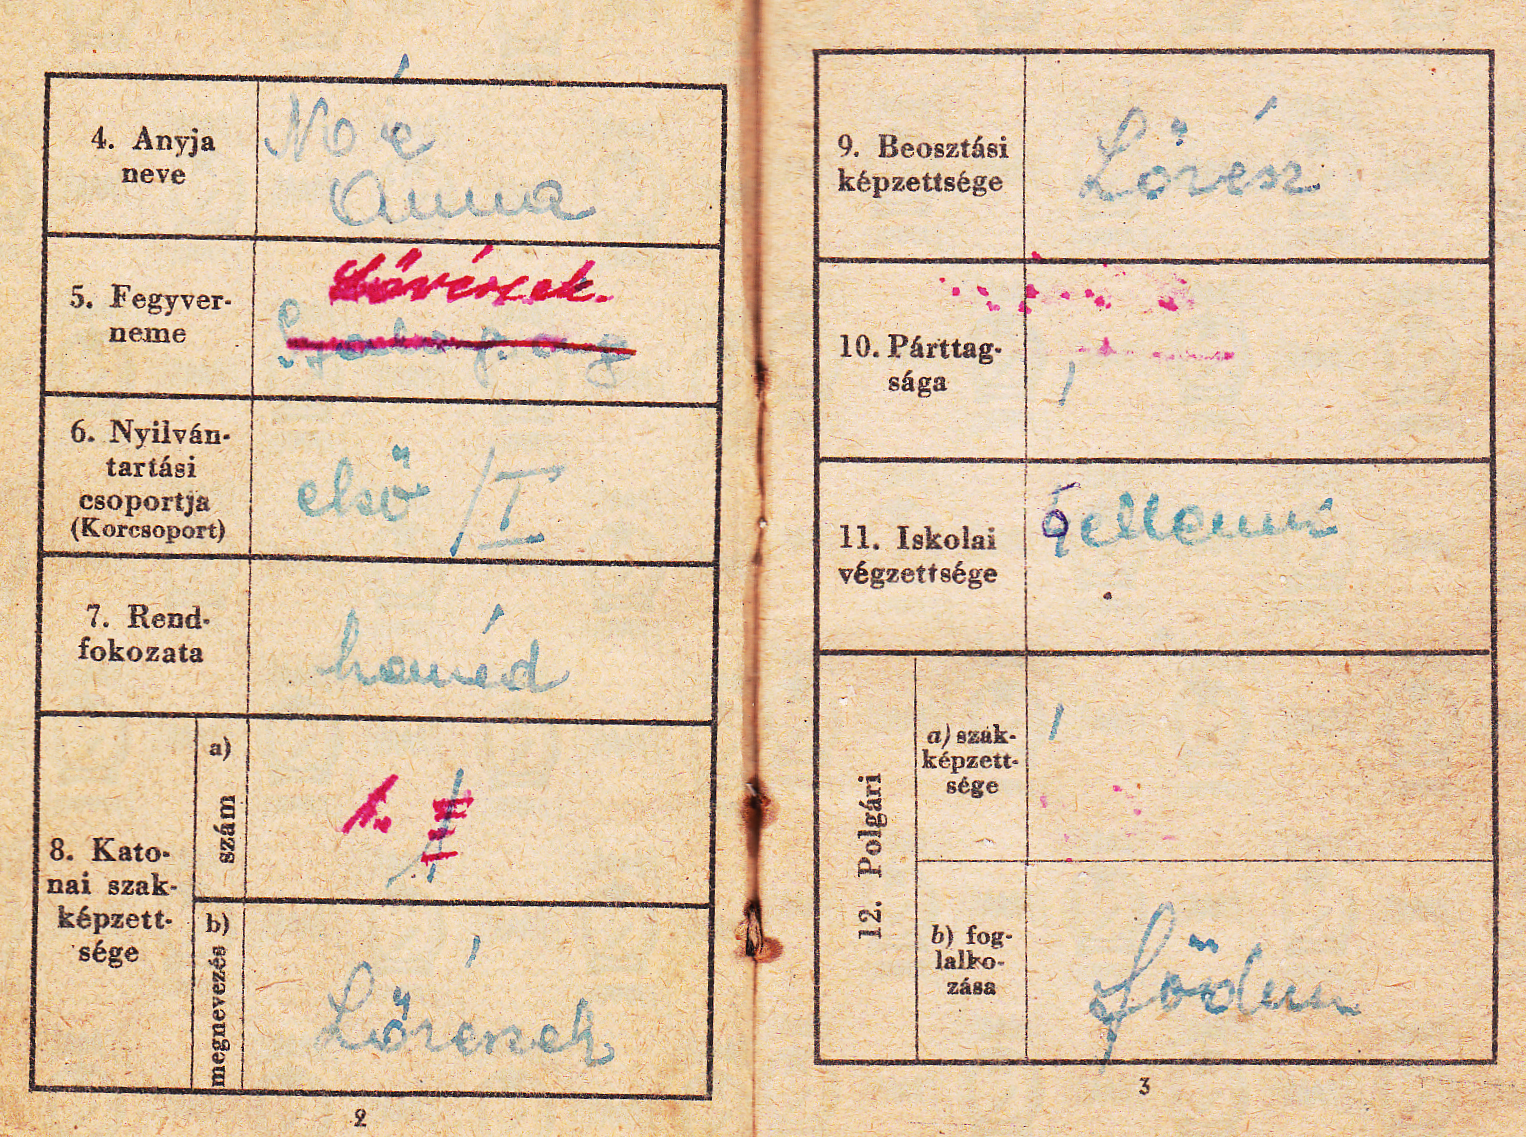 4. Anyja
neve
Anna
5. Fegyver-
neme
Lövészek.
6. Nyilván-
tartási
csoportja
(Korcsoport)
első /I
7. Rend-
fokozata
honvéd
8. Kato-
nai szak-
képzett-
sége
a)
szám
1.
b)
megnevezés
Lövészek
2
9. Beosztási
képzettsége
Lövész
10. Párttag-
sága
11. Iskolai
végzettsége
6 elemi
12. Polgári
a) szak-
képzett-
sége
b) fog-
lalko-
zása
földm
3